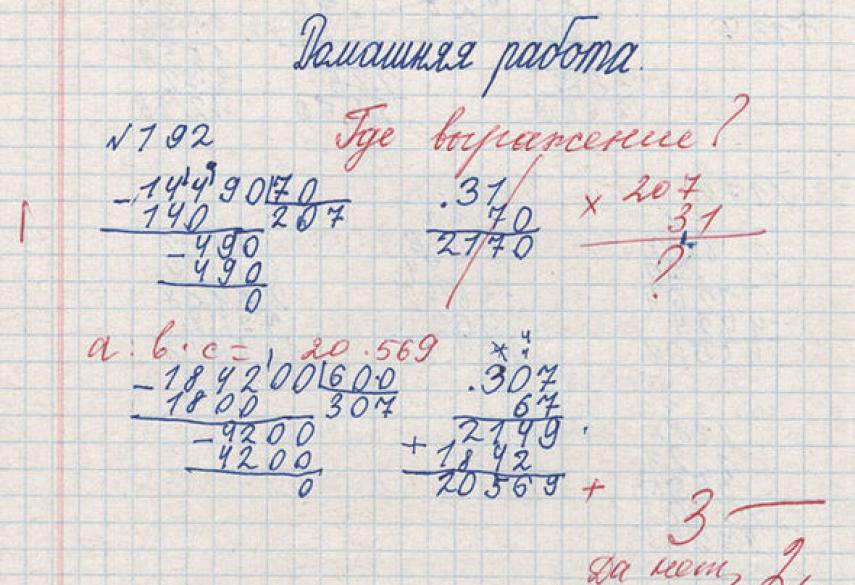 Домашняя работа.
№192 Где выражение?
-14490|70 .31 × 207
140 207 70 31
-490 2170 ?
490
0
a : b · c = 20.569
-184200|600 .307
1800 307 67
-4200 2149
4200 +1842
0 20569 +
3 —
Да нет, 2,